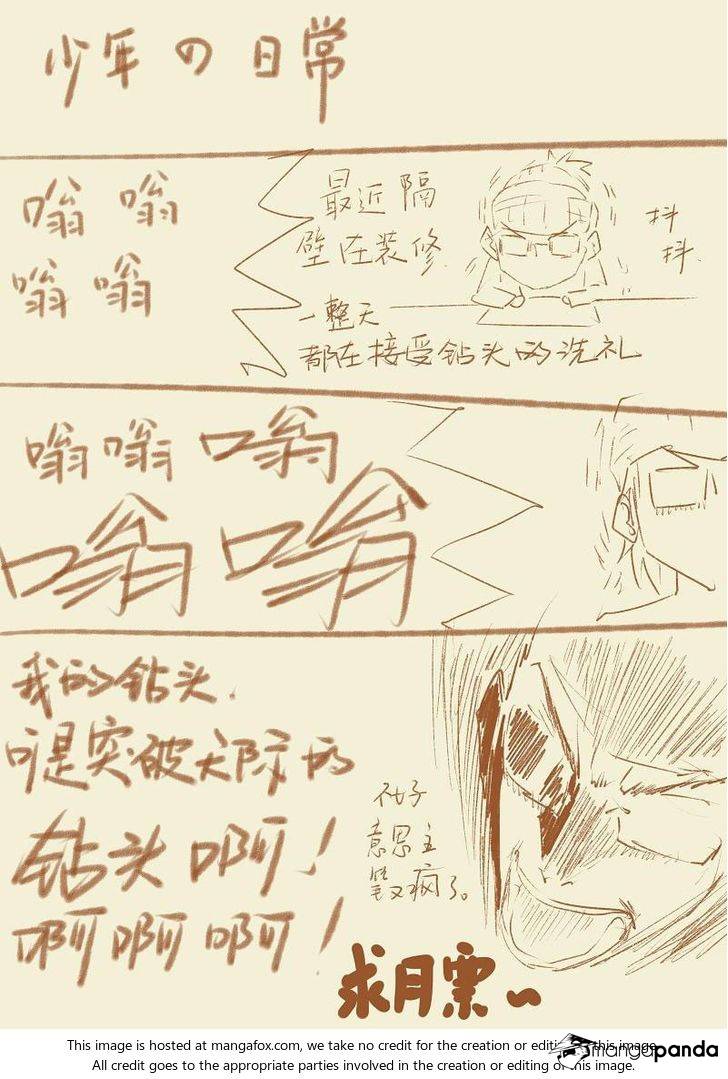 少年の日常
嗡嗡
嗡嗡
最近隔
壁在装修
抖
抖
一整天
都在接受钻头的洗礼
嗡嗡嗡
嗡嗡
我的钻头
可是突破天际的
钻头啊！
啊啊啊！
不好
意思主
笔又疯了。
求月票~
This image is hosted at mangafox.com, we take no credit for the creation or editing of this image.
All credit goes to the appropriate parties involved in the creation or editing of this image.
mangapanda